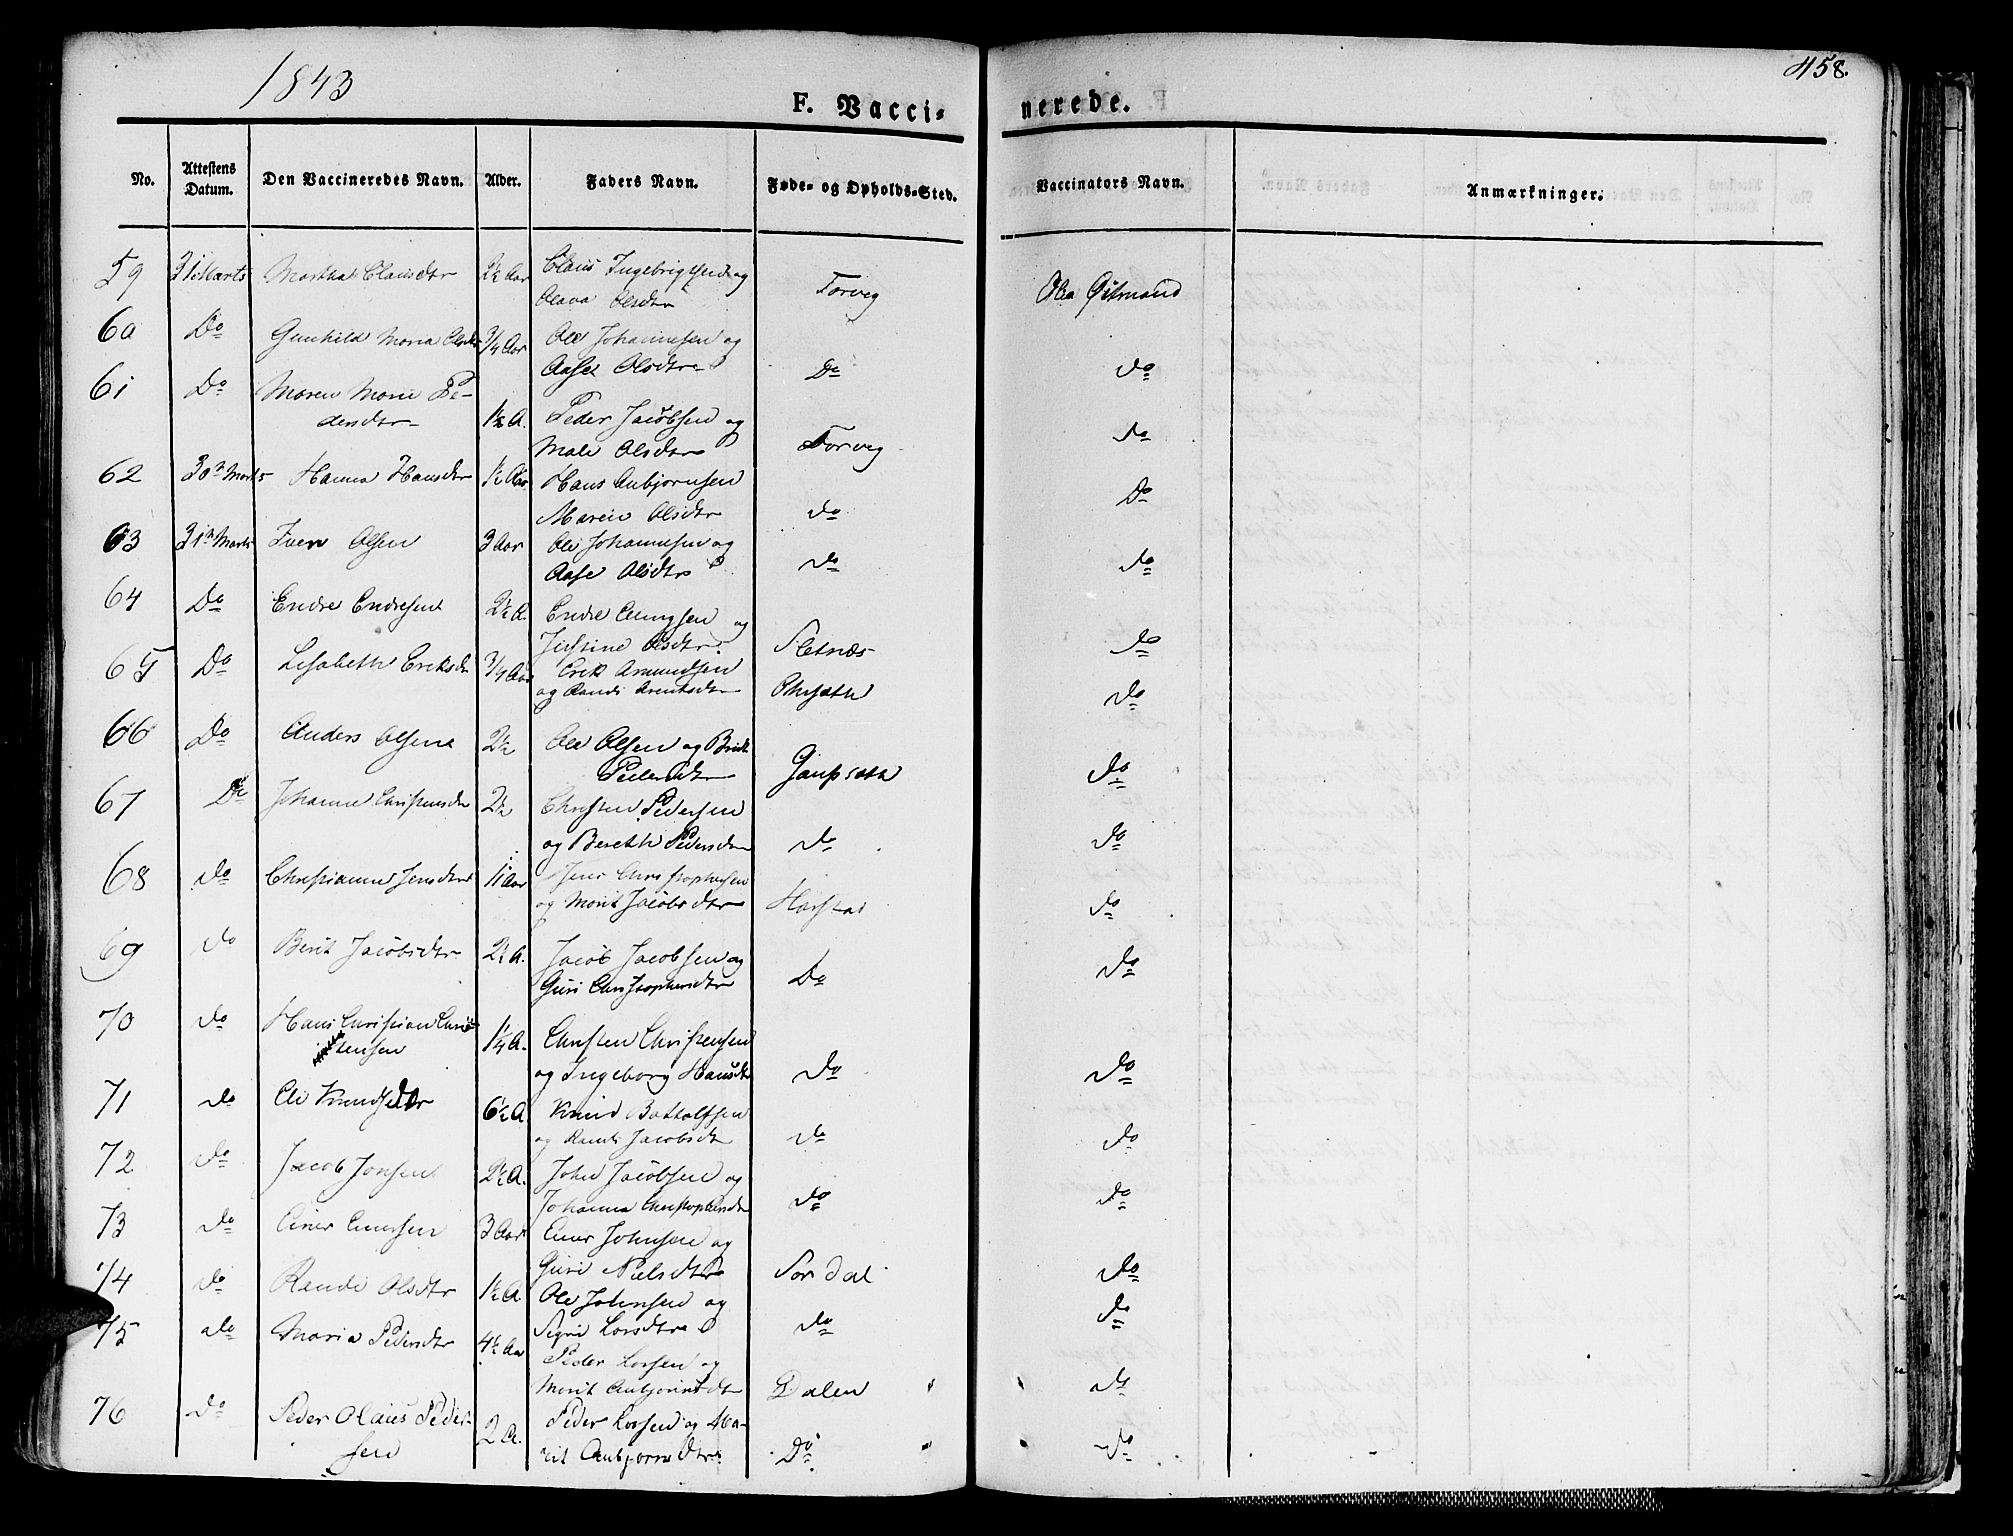 1843
458.
F. Vacci- nerede.
No. Attestens Datum. Den Vaccineredes Navn. Alder. Faders Navn. Føde- og Opholds-Sted. Vaccinators Navn. Anmærkninger.
59 31 Marts Martha Clausdtr 2½ Aar Claus Ingebrigtsen og
Olava Olsdtr Torvig Ola Østmand
60 Do Gunhild Maria Olsdtr 3/4 Aar Ole Johannesen og
Aase Olsdtr Do Do
61 Do Maren Marie Pe-
dersdtr 1½ A. Peder Jacobsen og
Male Olsdtr Torvig Do
62 30te Marts Hanna Hansdtr 1½ Aar Hans Anbjørnsen
Maren Olsdtr Do Do
63 31te Marts Iver Olsen 3 Aar Ole Johannesen og
Aase Olsdtr Do Do
64 Do Endre Endresen 2½ A. Endre og
Justine Olsdtr Sletnæs Do
65 Do Lisabeth Eriksdtr 3/4 Aar Erik Amundsen
og Randi Arentsdtr Do
66 Do Anders Olsen 2½ Ole Olsen og Brit
Pedersdtr Gaupsæth Do
67 Do Johanne Christensdtr 2½ Christen Pedersen
og Bereth Pedersdtr Do Do
68 Do Christianne Jensdtr 1¼ Aar Jens Christophersen
og Marit Jacobsdtr Harstad Do
69 Do Berit Jacobsdtr 2½ A. Jacob Jacobsen og
Guri Christophersdtr Do Do
70 Do Hans Christian Chris-
tensen 1¼ A. Christen Christensen
og Ingeborg Hansdtr Do Do
71 Do Eli Knudsdtr 6½ A Knud Bottolfsen
og Randi Jacobsdtr Do Do
72 Do Jacob Jonsen 2½ A. John Jacobsen og
Johanna Christophersdtr Do Do
73 Do Einer Einersen 3 Aar Einer Johnsen og
Guri Nielsdtr Sordal Do
74 Do Randi Olsdtr 1½ A Ole Johnsen og
Sigri Larsdtr Do Do
75 Do Maria Pedersdtr 4½ Aar Peder Larsen og
Marit Anbjørnsdtr Dalen Do
76 Do Peder Olaus Peder-
sen 2 A. Peder Larsen og Ma-
rit Anbjørnsdtr Do Do